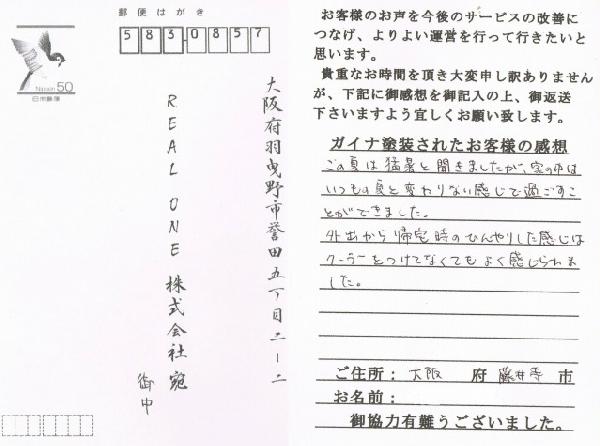 郵便はがき
583-0857
Nippon 50
日本郵便
大阪府羽曳野市誉田五丁目二ー二
REAL ONE 株式会社宛
御中
お客様のお声を今後のサービスの改善に
つなげ、よりよい運営を行って行きたいと
思います。
貴重なお時間を頂き大変申し訳ありません
が、下記に御感想を御記入の上、御返送
下さいますよう宜しくお願い致します。
ガイナ塗装されたお客様の感想
この夏は猛暑と聞きましたが、家の中は
いつもの夏と変わりない感じで過ごすこ
とができました。
外出から帰宅時のひんやりした感じは
クーラーをつけてなくてもよく感じられま
した。
ご住所：大阪 府 藤井寺 市
お名前：
御協力有難うございました。